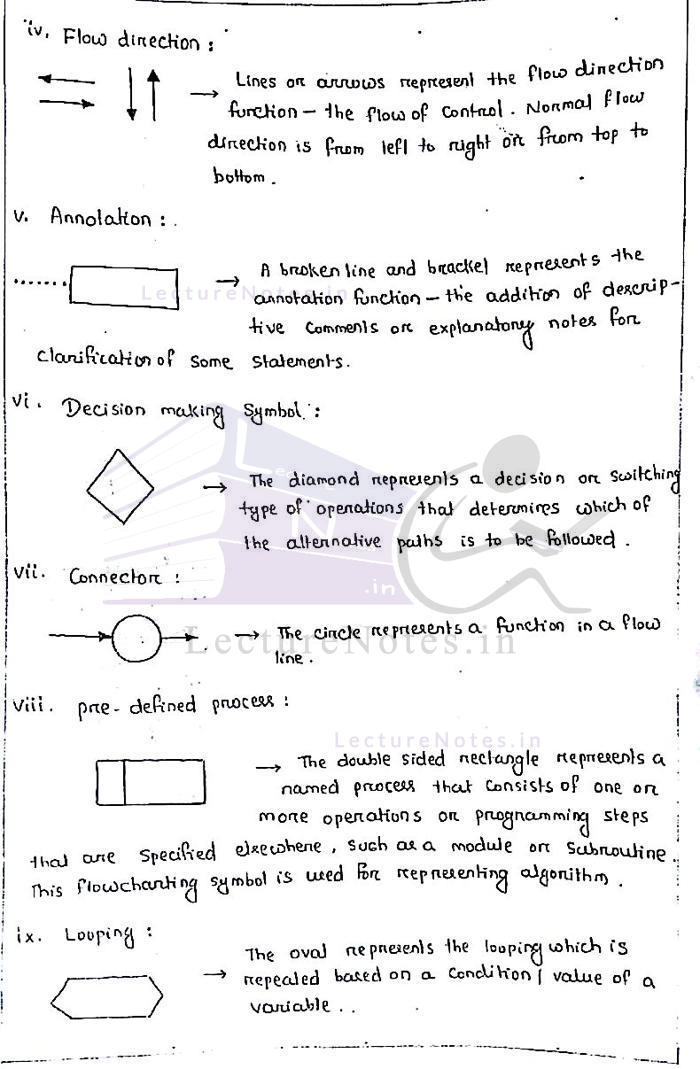 iv. Flow direction :
→ Lines or arrows represent the flow direction
function - the flow of control. Normal flow
direction is from left to right or from top to
bottom.
v. Annotation :
→ A broken line and bracket represents the
annotation function - the addition of descrip-
tive comments or explanatory notes for
clarification of some statements.
vi. Decision making Symbol :
→ The diamond represents a decision or switching
type of operations that determines which of
the alternative paths is to be followed.
vii. Connector :
→ The circle represents a function in a flow
line.
viii. pre-defined process :
→ The double sided rectangle represents a
named process that consists of one or
more operations or programming steps
that are specified elsewhere, such as a module or subroutine.
This flowcharting symbol is used for representing algorithm.
ix. Looping :
→ The oval represents the looping which is
repeated based on a condition / value of a
variable..
LectureNotes.in
LectureNotes.in
LectureNotes.in